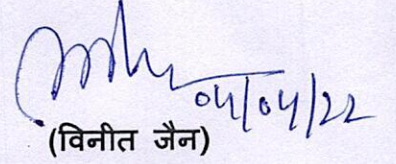 04/04/22
(विनीत जैन)